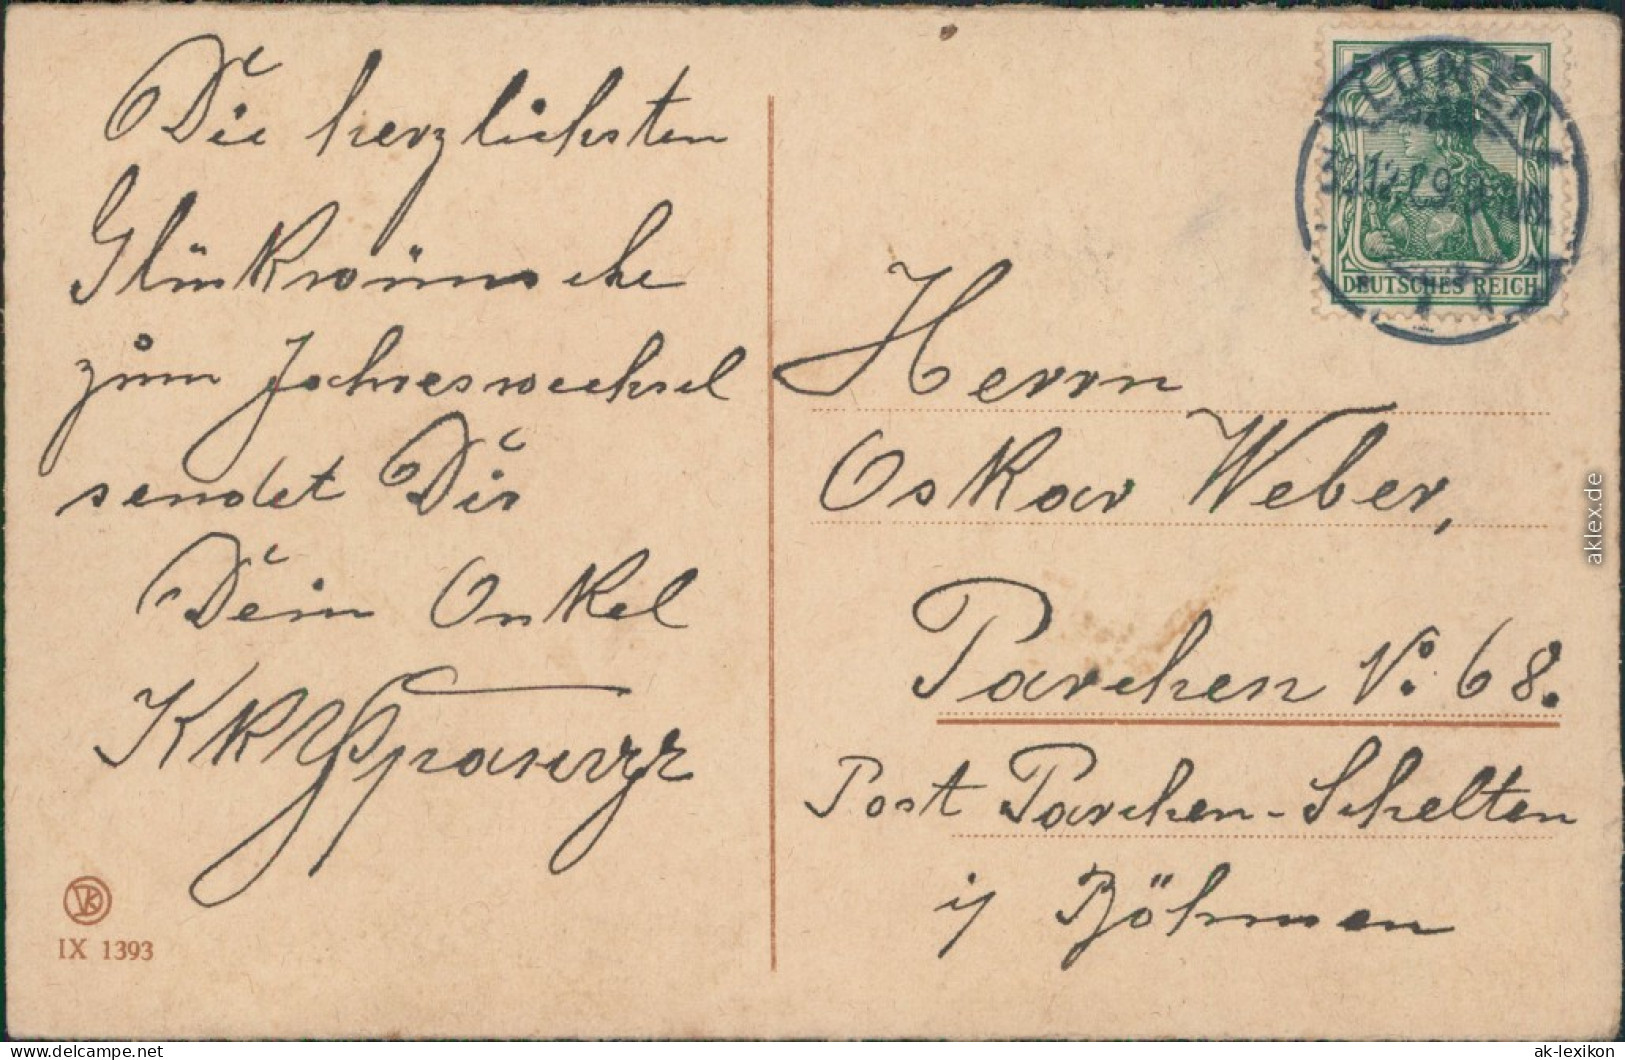 Die herzlichsten
Glückwünsche
zum Jahreswechsel
sendet Dir
Dein Onkel
IX 1393
5 5
DEUTSCHES REICH
LÜNEN
Herrn
Oskar Weber,
Parchen No. 68.
Post Parchen-Schelten
i/ Böhmen
aklex.de
delcampe.net
ak-lexikon